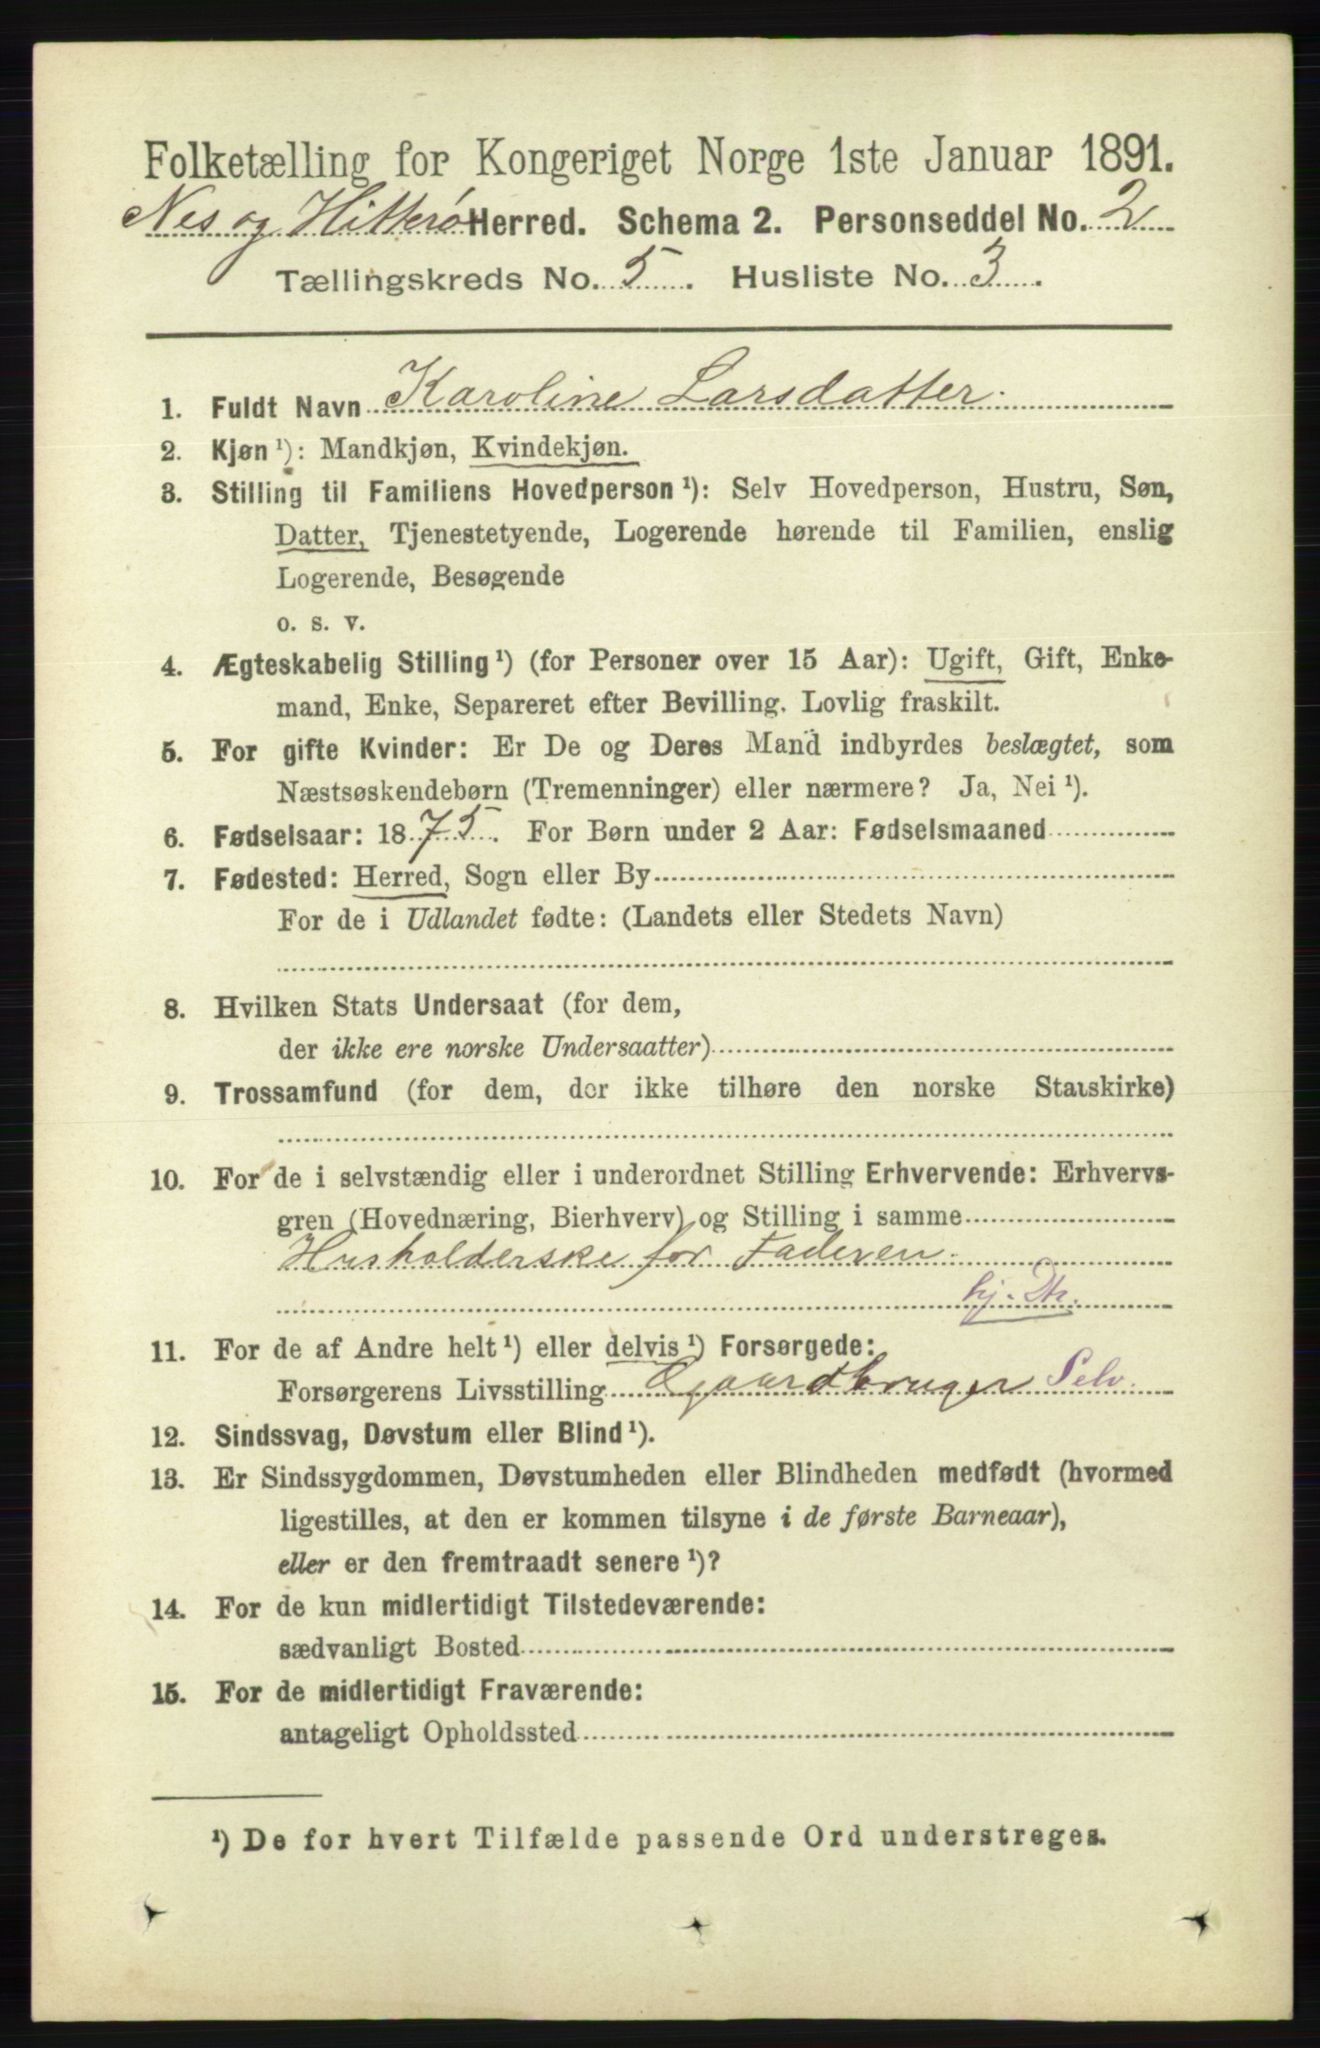 Folketælling for Kongeriget Norge 1ste Januar 1891.
Nes og Hitterø Herred. Schema 2. Personseddel No. 2
Tællingskreds No. 5. Husliste No. 3.
1. Fuldt Navn Karoline Larsdatter.
2. Kjøn ¹): Mandkjøn, Kvindekjøn.
3. Stilling til Familiens Hovedperson ¹): Selv Hovedperson, Hustru, Søn,
Datter, Tjenestetyende, Logerende hørende til Familien, enslig
Logerende, Besøgende
o. s. v.
4. Ægteskabelig Stilling ¹) (for Personer over 15 Aar): Ugift, Gift, Enke-
mand, Enke, Separeret efter Bevilling. Lovlig fraskilt.
5. For gifte Kvinder: Er De og Deres Mand indbyrdes beslægtet, som
Næstsøskendebørn (Tremenninger) eller nærmere? Ja, Nei ¹).
6. Fødselsaar: 1875. For Børn under 2 Aar: Fødselsmaaned
7. Fødested: Herred, Sogn eller By
For de i Udlandet fødte: (Landets eller Stedets Navn)
8. Hvilken Stats Undersaat (for dem,
der ikke ere norske Undersaatter)
9. Trossamfund (for dem, der ikke tilhøre den norske Statskirke)
10. For de i selvstændig eller i underordnet Stilling Erhvervende: Erhvervs-
gren (Hovednæring, Bierhverv) og Stilling i samme
Husholderske for Faderen.
hj. Dtr.
11. For de af Andre helt ¹) eller delvis ¹) Forsørgede:
Forsørgerens Livsstilling Gaardbruger Selv.
12. Sindssvag, Døvstum eller Blind ¹).
13. Er Sindssygdommen, Døvstumheden eller Blindheden medfødt (hvormed
ligestilles, at den er kommen tilsyne i de første Barneaar),
eller er den fremtraadt senere ¹)?
14. For de kun midlertidigt Tilstedeværende:
sædvanligt Bosted
15. For de midlertidigt Fraværende:
antageligt Opholdssted
¹) De for hvert Tilfælde passende Ord understreges.